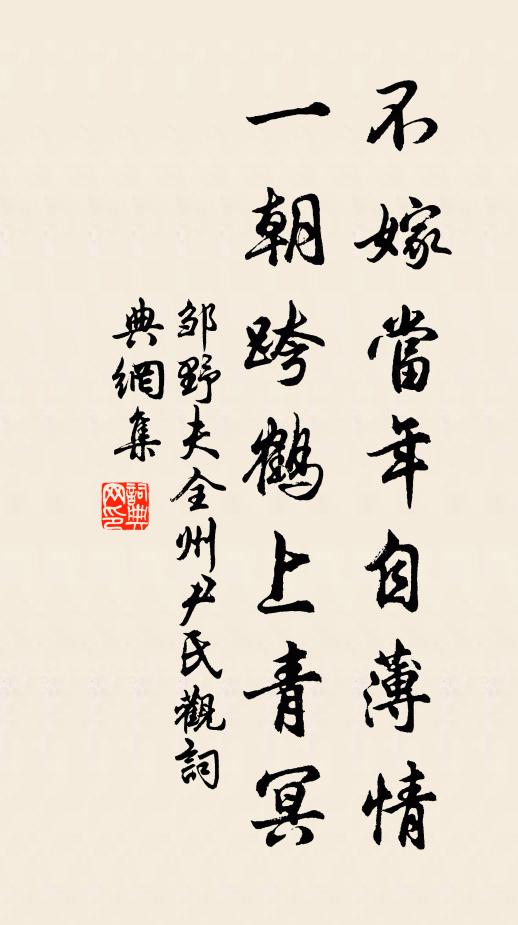 不嫁當年自薄情
一朝跨鶴上青冥
邹野夫全州尹民觀詞
典網集
詞典網印